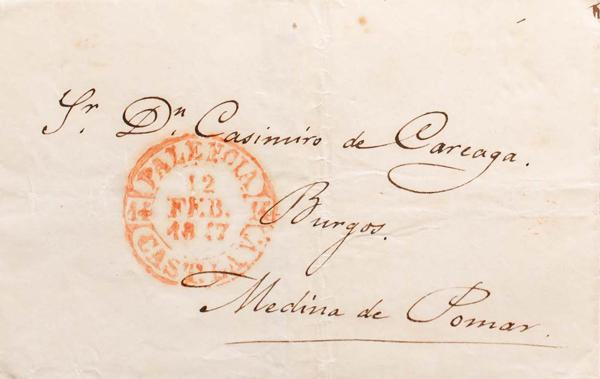 Sr. Dn. Casimiro de Careaga.
Burgos.
Medina de Pomar.
PALENCIA
12
FEB.
CAST. LA V.